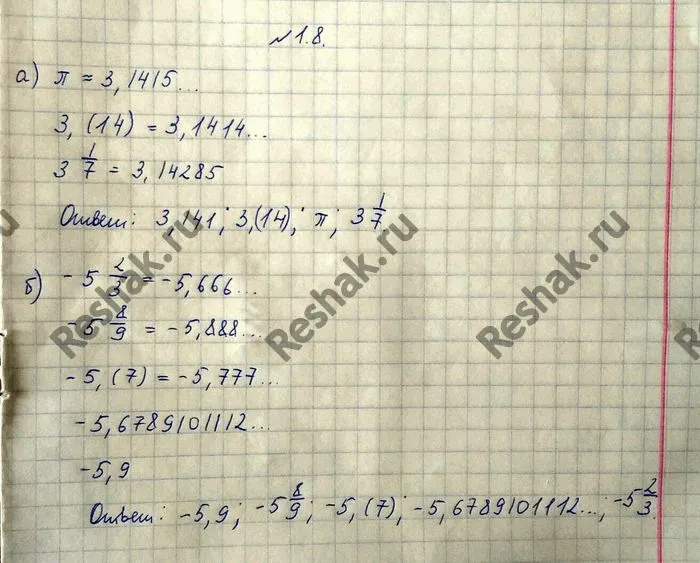 №1.8.
а) π ≈ 3,1415...
3,(14) = 3,1414...
3 1/7 = 3,14285
Ответ: 3,141; 3,(14); π; 3 1/7
б) -5 2/3 = -5,666...
-5 8/9 = -5,888...
-5,(7) = -5,777...
-5,6789101112...
-5,9
Ответ: -5,9; -5 8/9; -5,(7); -5,6789101112...; -5 2/3.
Reshak.ru
Reshak.ru
Reshak.ru
Reshak.ru